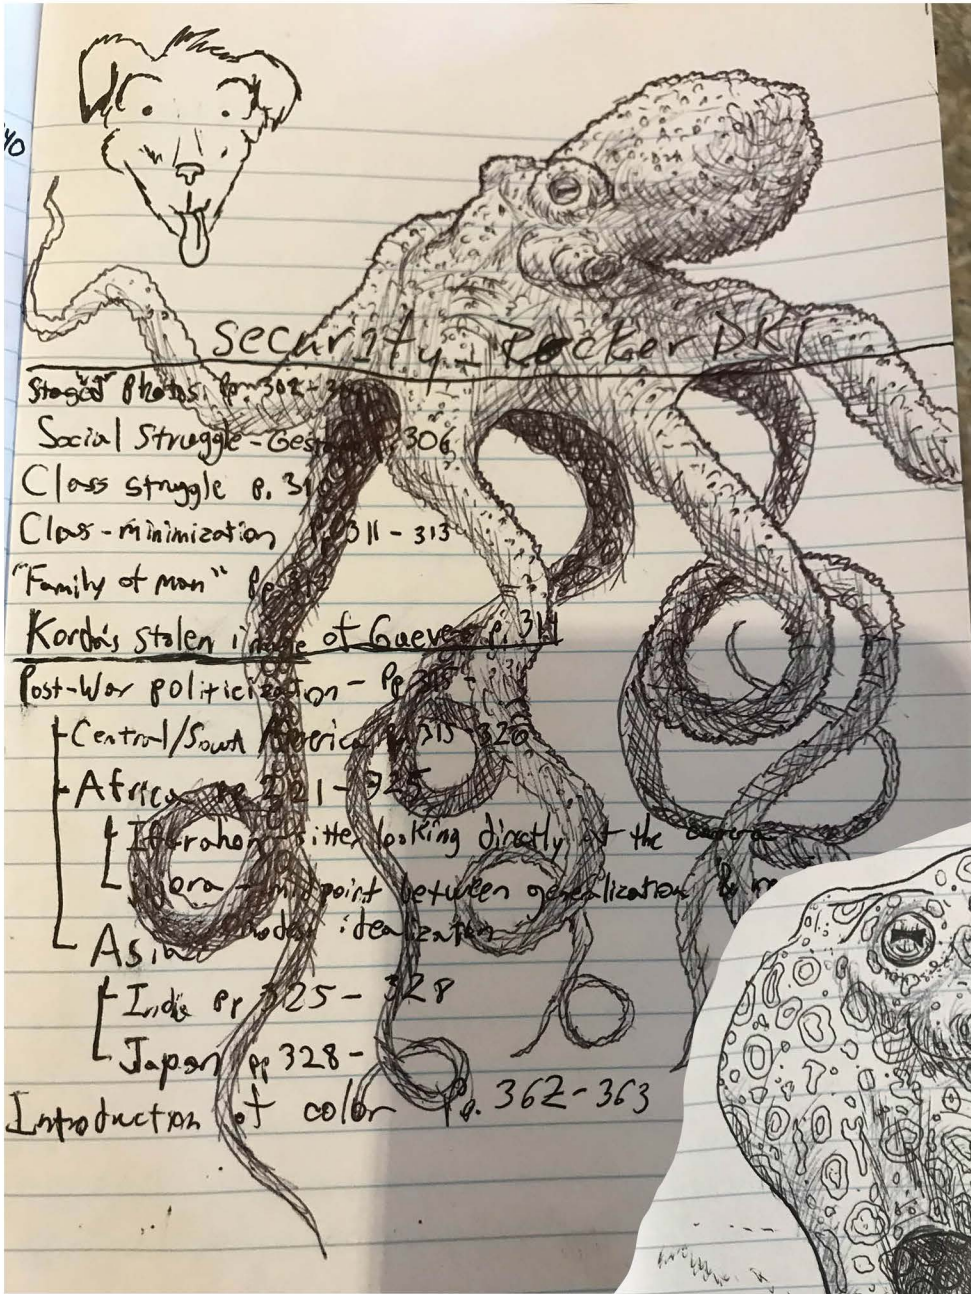 40
Security Rocker DKI
Staged Photos pp. 302-
Social Struggle - 306
Class struggle p. 310
Class-minimization 311 - 313
"Family of man" pp
Korda's stolen image of Gueve p. 314
Post-War politicization - pp 315 -
Central/South America 315-320
Africa pp 321 - 325
looking directly at the camera
midpoint between generalization &
idealization
Asia
India pp 325 - 328
Japan pp 328 -
Introduction of color Pg. 362-363